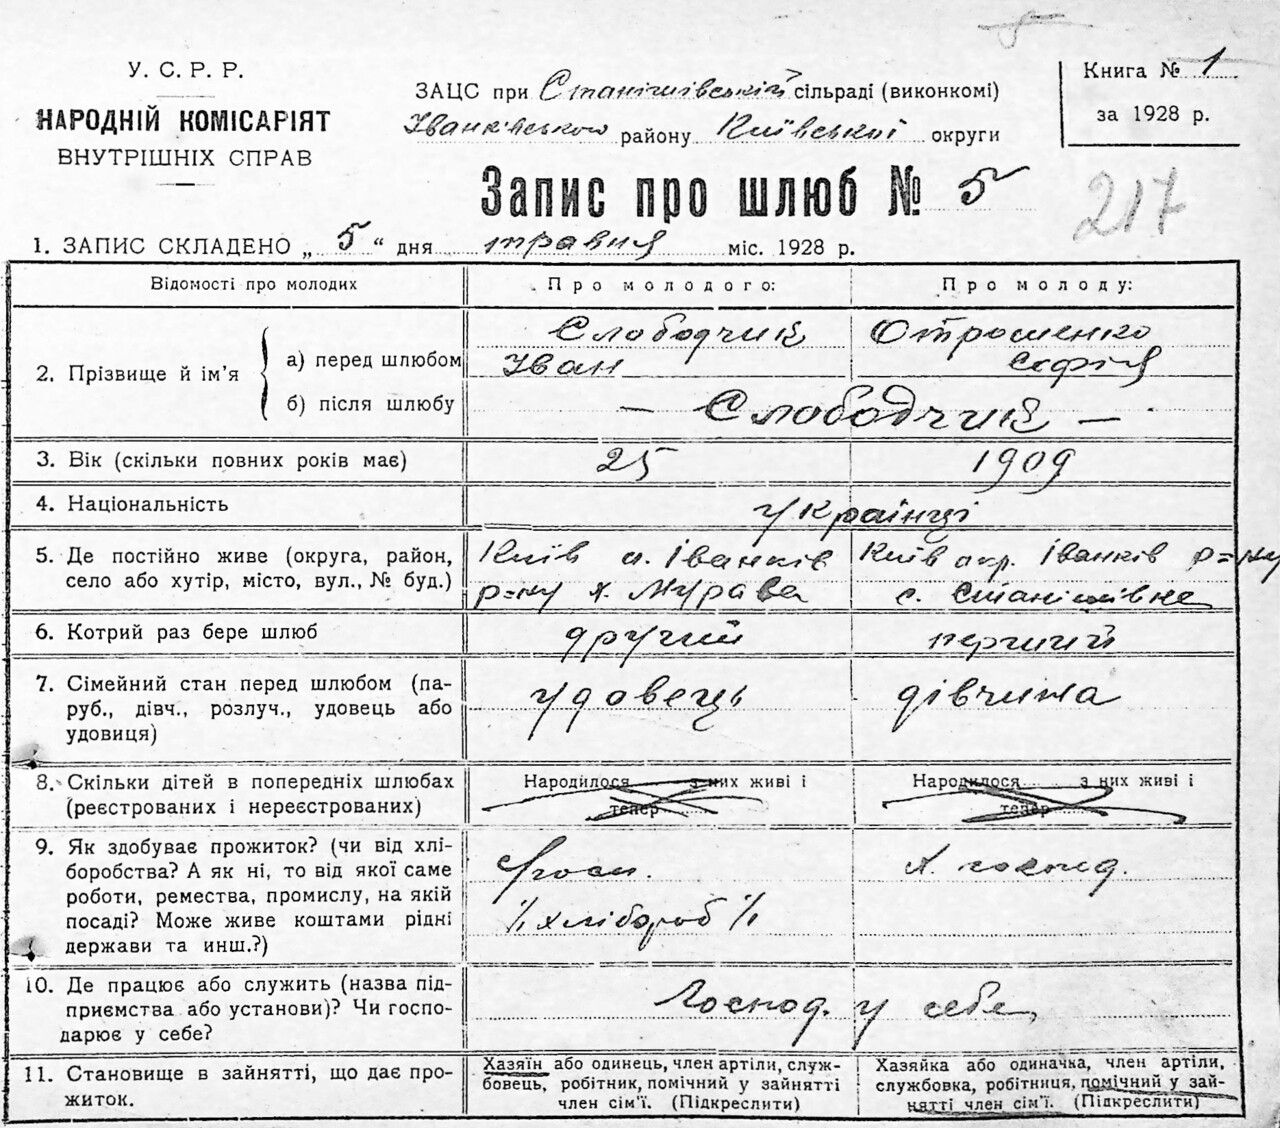 У. С. Р. Р.
НАРОДНІЙ КОМІСАРІЯТ
ВНУТРІШНІХ СПРАВ
ЗАЦС при Станішівській сільраді (виконкомі)
Іванківського району Київської округи
Книга № 1
за 1928 р.
Запис про шлюб № 5
217
1. ЗАПИС СКЛАДЕНО „ 5 “ дня травня міс. 1928 р.
Відомості про молодих
Про молодого:
Про молоду:
2. Прізвище й ім’я
а) перед шлюбом
Слободчик
Іван
Отрошенко
Софія
б) після шлюбу
— Слободчик —
3. Вік (скільки повних років має)
25
1909
4. Національність
українці
5. Де постійно живе (округа, район,
село або хутір, місто, вул., № буд.)
Київ о. Іванків
р=ну х. Мурава
Київ окр. Іванків р=ну
с. Станішівка
6. Котрий раз бере шлюб
другий
перший
7. Сімейний стан перед шлюбом (па-
руб., дівч., розлуч., удовець або
удовиця)
удовець
дівчина
8. Скільки дітей в попередніх шлюбах
(реєстрованих і нереєстрованих)
Народилося з них живі і
тепер
Народилося з них живі і
тепер
9. Як здобуває прожиток? (чи від хлі-
боробства? А як ні, то від якої саме
роботи, ремества, промислу, на якій
посаді? Може живе коштами рідні
держави та инш.?)
хлібороб
10. Де працює або служить (назва під-
приємства або установи)? Чи госпо-
дарює у себе?
Господ. у себе
11. Становище в зайнятті, що дає про-
житок.
Хазяїн або одинець, член артіли, служ-
бовець, робітник, помічний у зайнятті
член сім’ї. (Підкреслити)
Хазяйка або одиначка, член артіли,
службовка, робітниця, помічний у зай-
нятті член сім’ї. (Підкреслити)